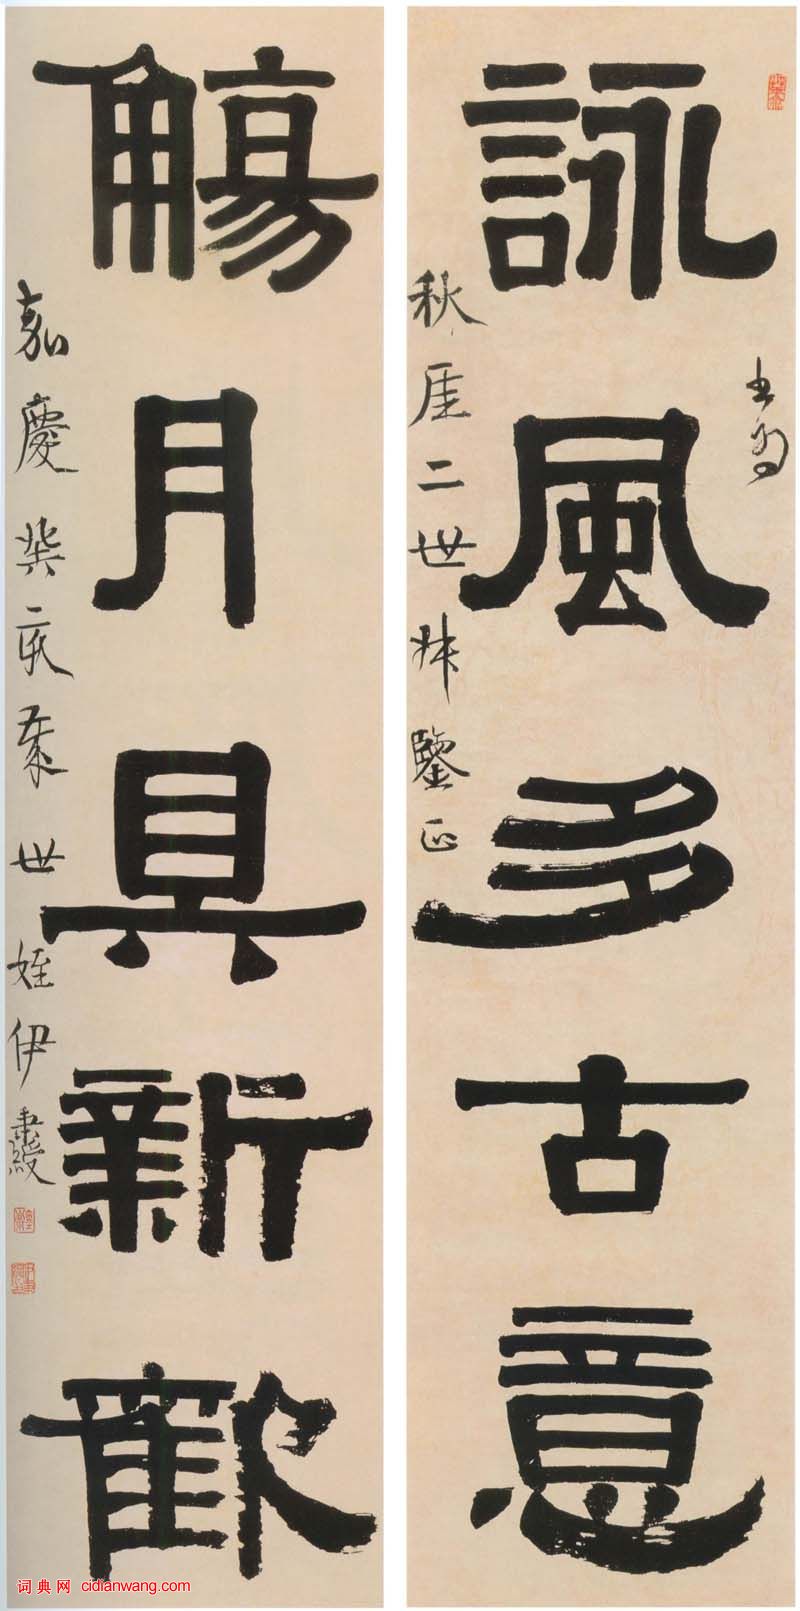 書為
詠風多古意
秋厓二世叔鑒正
觴月具新歡
嘉慶癸亥世姪伊秉綬
词典网 cidianwang.com